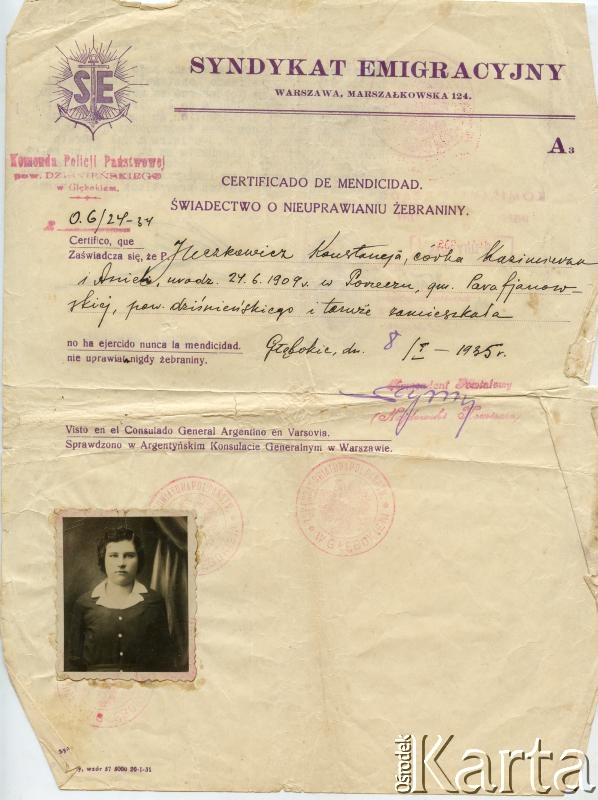 SE
SYNDYKAT EMIGRACYJNY
WARSZAWA, MARSZAŁKOWSKA 124.
A3
Komenda Policji Państwowej
pow. DZIŚNIEŃSKIEGO
w Głębokiem.
CERTIFICADO DE MENDICIDAD.
ŚWIADECTWO O NIEUPRAWIANIU ŻEBRANINY.
0.6/24-34
Certifico, que
Zaświadcza się, że P. Konstancja, córka Kazimierza
i Anieli, urodz. 24.6.1909 r. w gm. Parafjanow-
skiej, pow. dziśnieńskiego i tamże zamieszkała
no ha ejercido nunca la mendicidad.
nie uprawiał nigdy żebraniny.
Głębokie, dn. 8/I – 1935 r.
Komendant Powiatowy
Visto en el Consulado General Argentino en Varsovia.
Sprawdzono w Argentyńskim Konsulacie Generalnym w Warszawie.
wzór 57 5000 20-I-31
Ośrodek
Karta